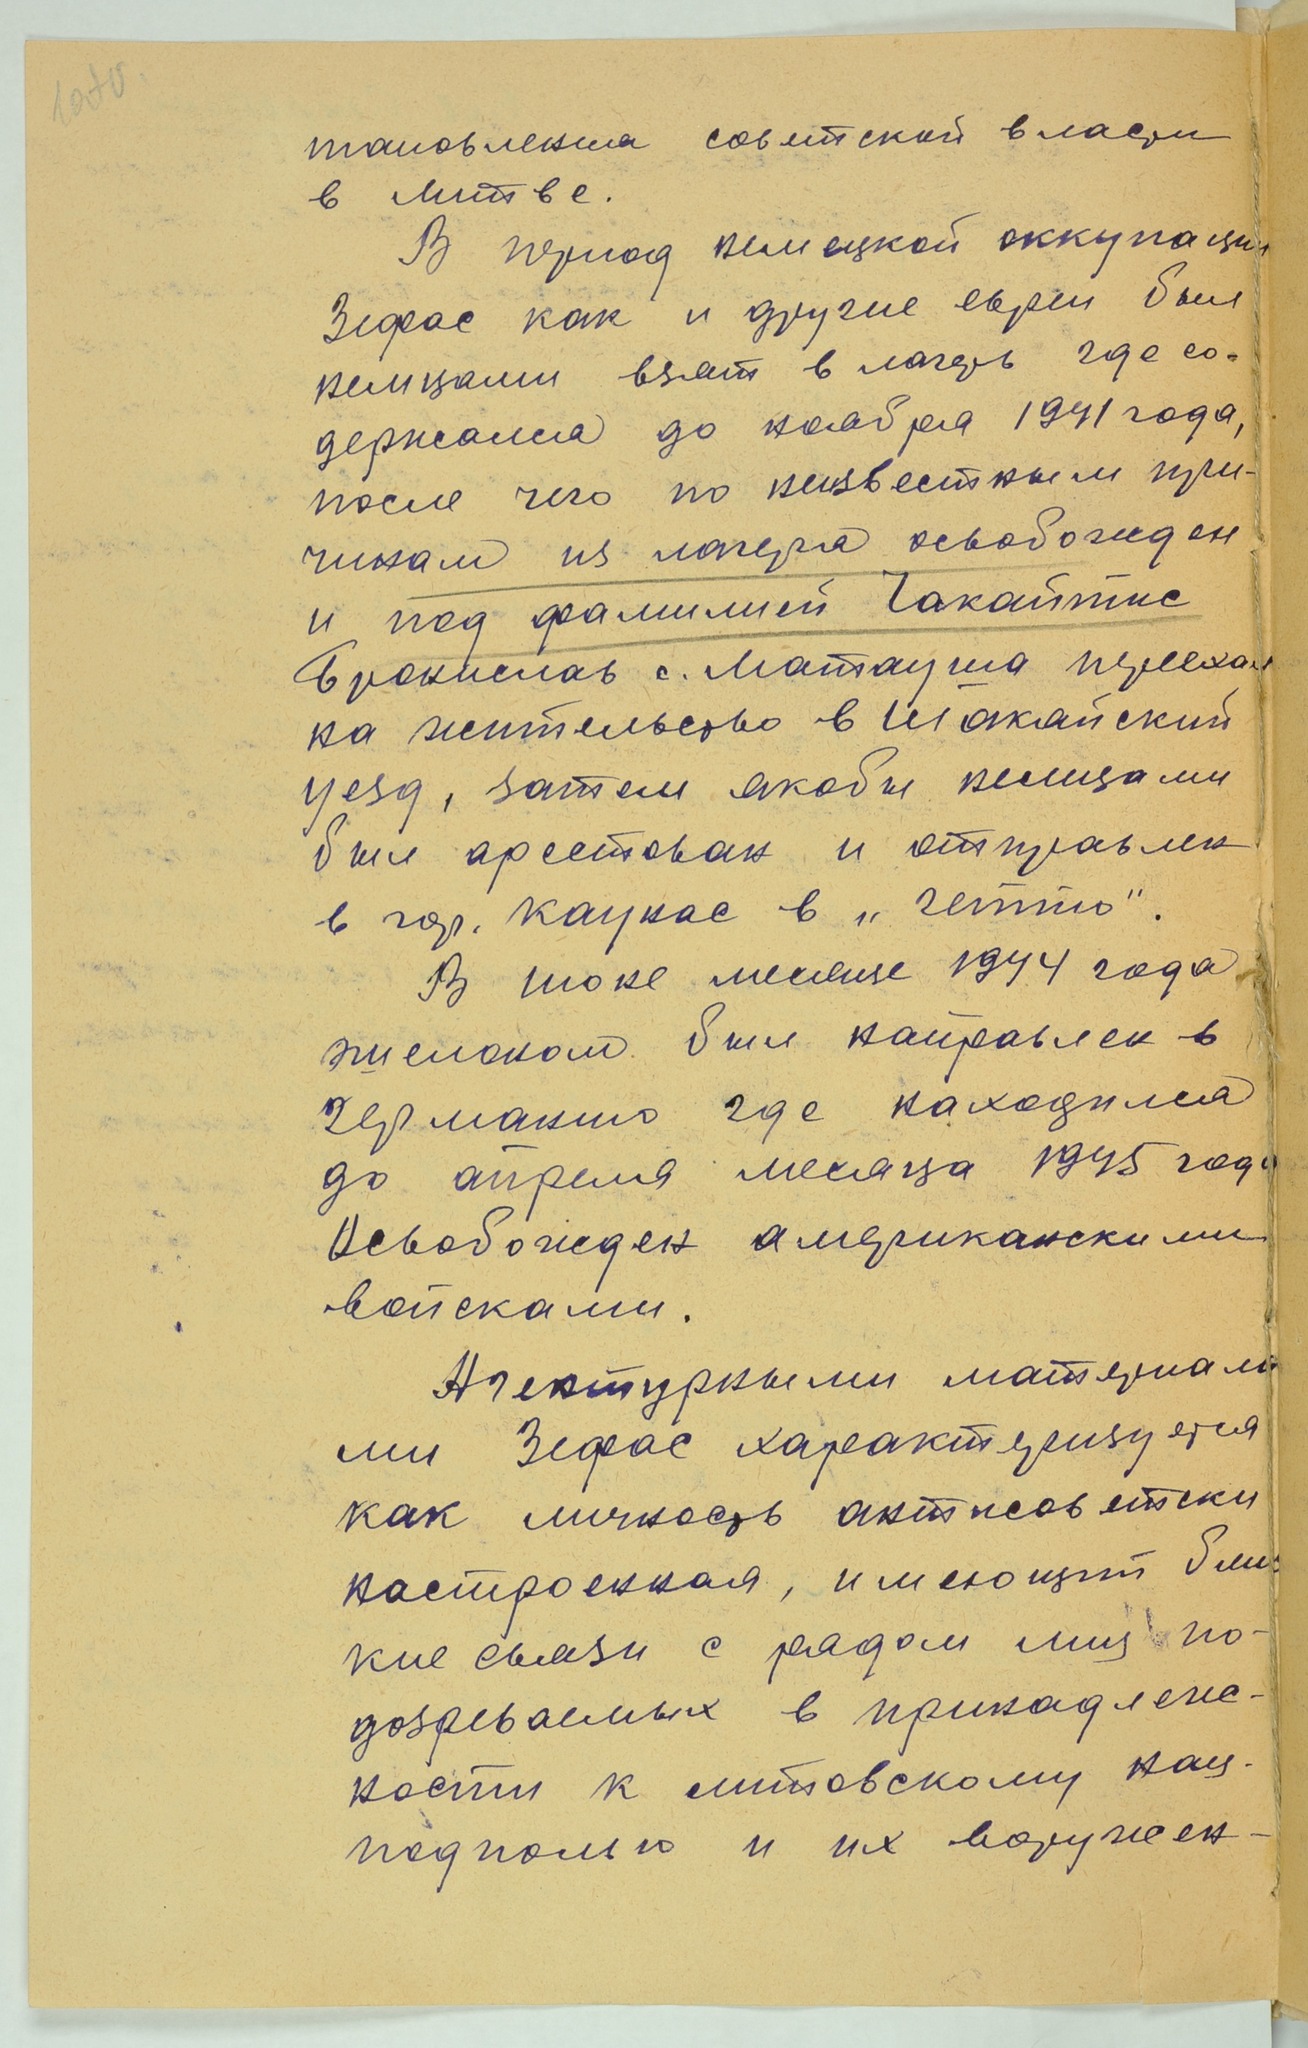 тановления советской власти
в Литве.
В период немецкой оккупации
Зефас как и другие евреи был
немцами взят в лагерь где со-
держался до ноября 1941 года,
после чего по неизвестным при-
чинам из лагеря освобожден
и под фамилией Чакайтис
Бронислав с. Матауша переехал
на жительство в Шакайский
уезд, затем якобы немцами
был арестован и отправлен
в гор. Каунас в „гетто".
В июне месяце 1944 года
эшелоном был направлен в
Германию где находился
до апреля месяца 1945 года
Освобожден американскими
войсками.
Агентурными материала
ми Зефас характеризуется
как личность антисоветски
настроенная, имеющий блис
кие связи с рядом лиц по-
дозреваемых в принадлеж-
ности к литовскому нац.
подполью и их вооружен-